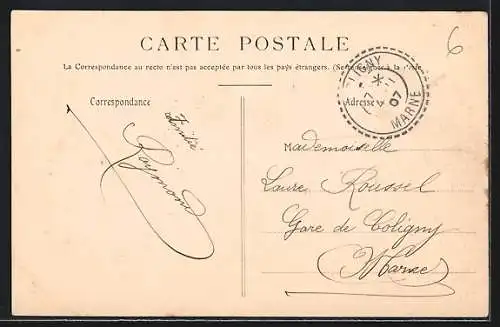 CARTE POSTALE
6
La Correspondance au recto n'est pas acceptée par tous les pays étrangers.
Correspondance
Adresse
LIGNY
07
MARNE
Amitié
Raymond
Mademoiselle
Laure Roussel
Gare de Coligny
Marne